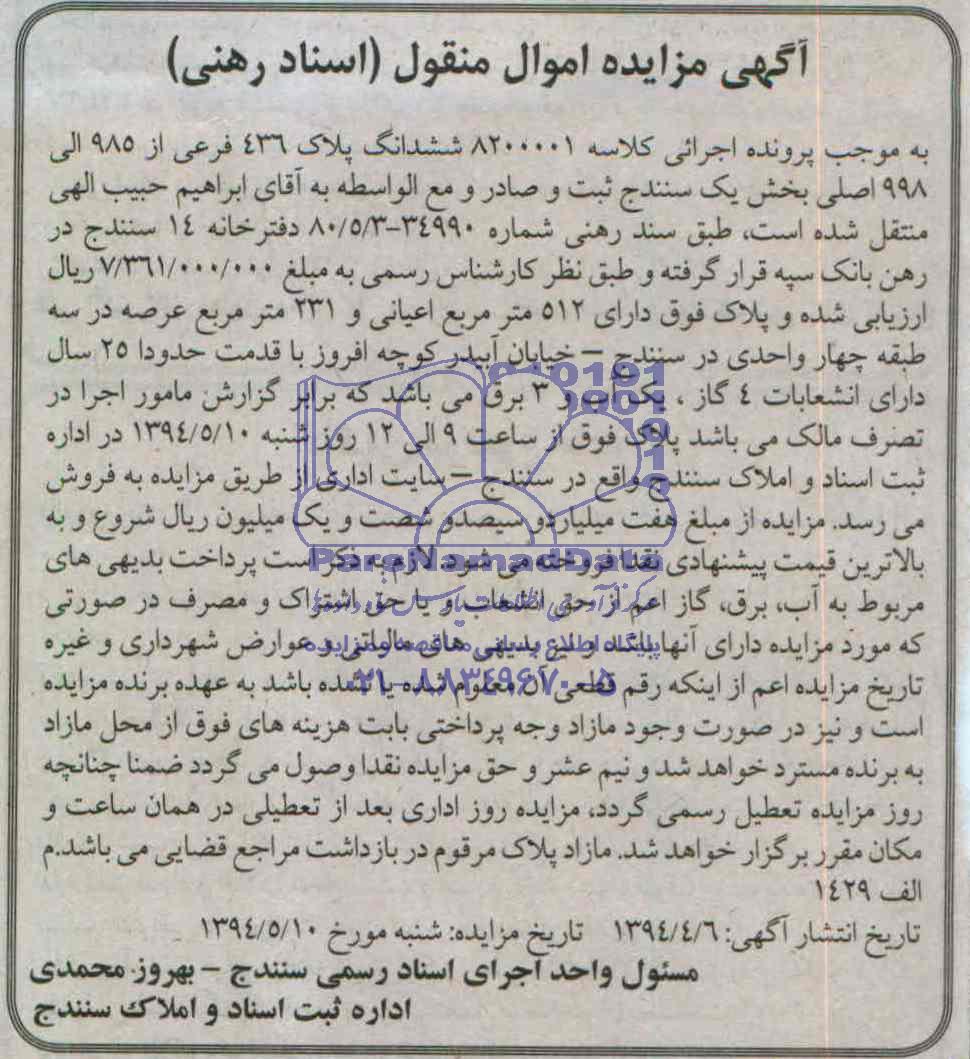 آگهی مزایده اموال منقول (اسناد رهنی)
به موجب پرونده اجرائی کلاسه ۸۲۰۰۰۰۱ ششدانگ پلاک ٤٣٦ فرعی از ۹۸۵ الی
۹۹۸ اصلی بخش یک سنندج ثبت و صادر و مع الواسطه به آقای ابراهیم حبیب الهی
منتقل شده است، طبق سند رهنی شماره ٣٤٩٩٠-۸۰/۵/۳ دفترخانه ١٤ سنندج در
رهن بانک سپه قرار گرفته و طبق نظر کارشناس رسمی به مبلغ ٧/٣٦١/٠٠٠/٠٠٠ ریال
ارزیابی شده و پلاک فوق دارای ۵۱۲ متر مربع اعیانی و ۲۳۱ متر مربع عرصه در سه
طبقه چهار واحدی در سنندج – خیابان آبیدر کوچه افروز با قدمت حدودا ۲۵ سال
دارای انشعابات ٤ گاز ، یک آب و ۳ برق می باشد که برابر گزارش مامور اجرا در
تصرف مالک می باشد پلاک فوق از ساعت ۹ الی ۱۲ روز شنبه ۱۳۹٤/۵/۱۰ در اداره
ثبت اسناد و املاک سنندج واقع در سنندج – سایت اداری از طریق مزایده به فروش
می رسد. مزایده از مبلغ هفت میلیاردو سیصدو شصت و یک میلیون ریال شروع و به
بالاترین قیمت پیشنهادی نقدا فروخته می شود. لازم به ذکر است پرداخت بدیهی های
مربوط به آب، برق، گاز اعم از حق انشعاب و یا حق اشتراک و مصرف در صورتی
که مورد مزایده دارای آنها باشد و نیز بدیهی های مالیاتی و عوارض شهرداری و غیره
تاریخ مزایده اعم از اینکه رقم قطعی آن معلوم شده یا نشده باشد به عهده برنده مزایده
است و نیز در صورت وجود مازاد وجه پرداختی بابت هزینه های فوق از محل مازاد
به برنده مسترد خواهد شد و نیم عشر و حق مزایده نقدا وصول می گردد ضمنا چنانچه
روز مزایده تعطیل رسمی گردد، مزایده روز اداری بعد از تعطیلی در همان ساعت و
مکان مقرر برگزار خواهد شد. مازاد پلاک مرقوم در بازداشت مراجع قضایی می باشد.م
الف ١٤٢٩
تاریخ انتشار آگهی: ۱۳۹٤/٤/٦ تاریخ مزایده: شنبه مورخ ۱۳۹٤/۵/۱۰
مسئول واحد اجرای اسناد رسمی سنندج – بهروز محمدی
اداره ثبت اسناد و املاک سنندج
ParsNamadData
۰۲۱-۸۸۳٤۹٦۷۰-۵